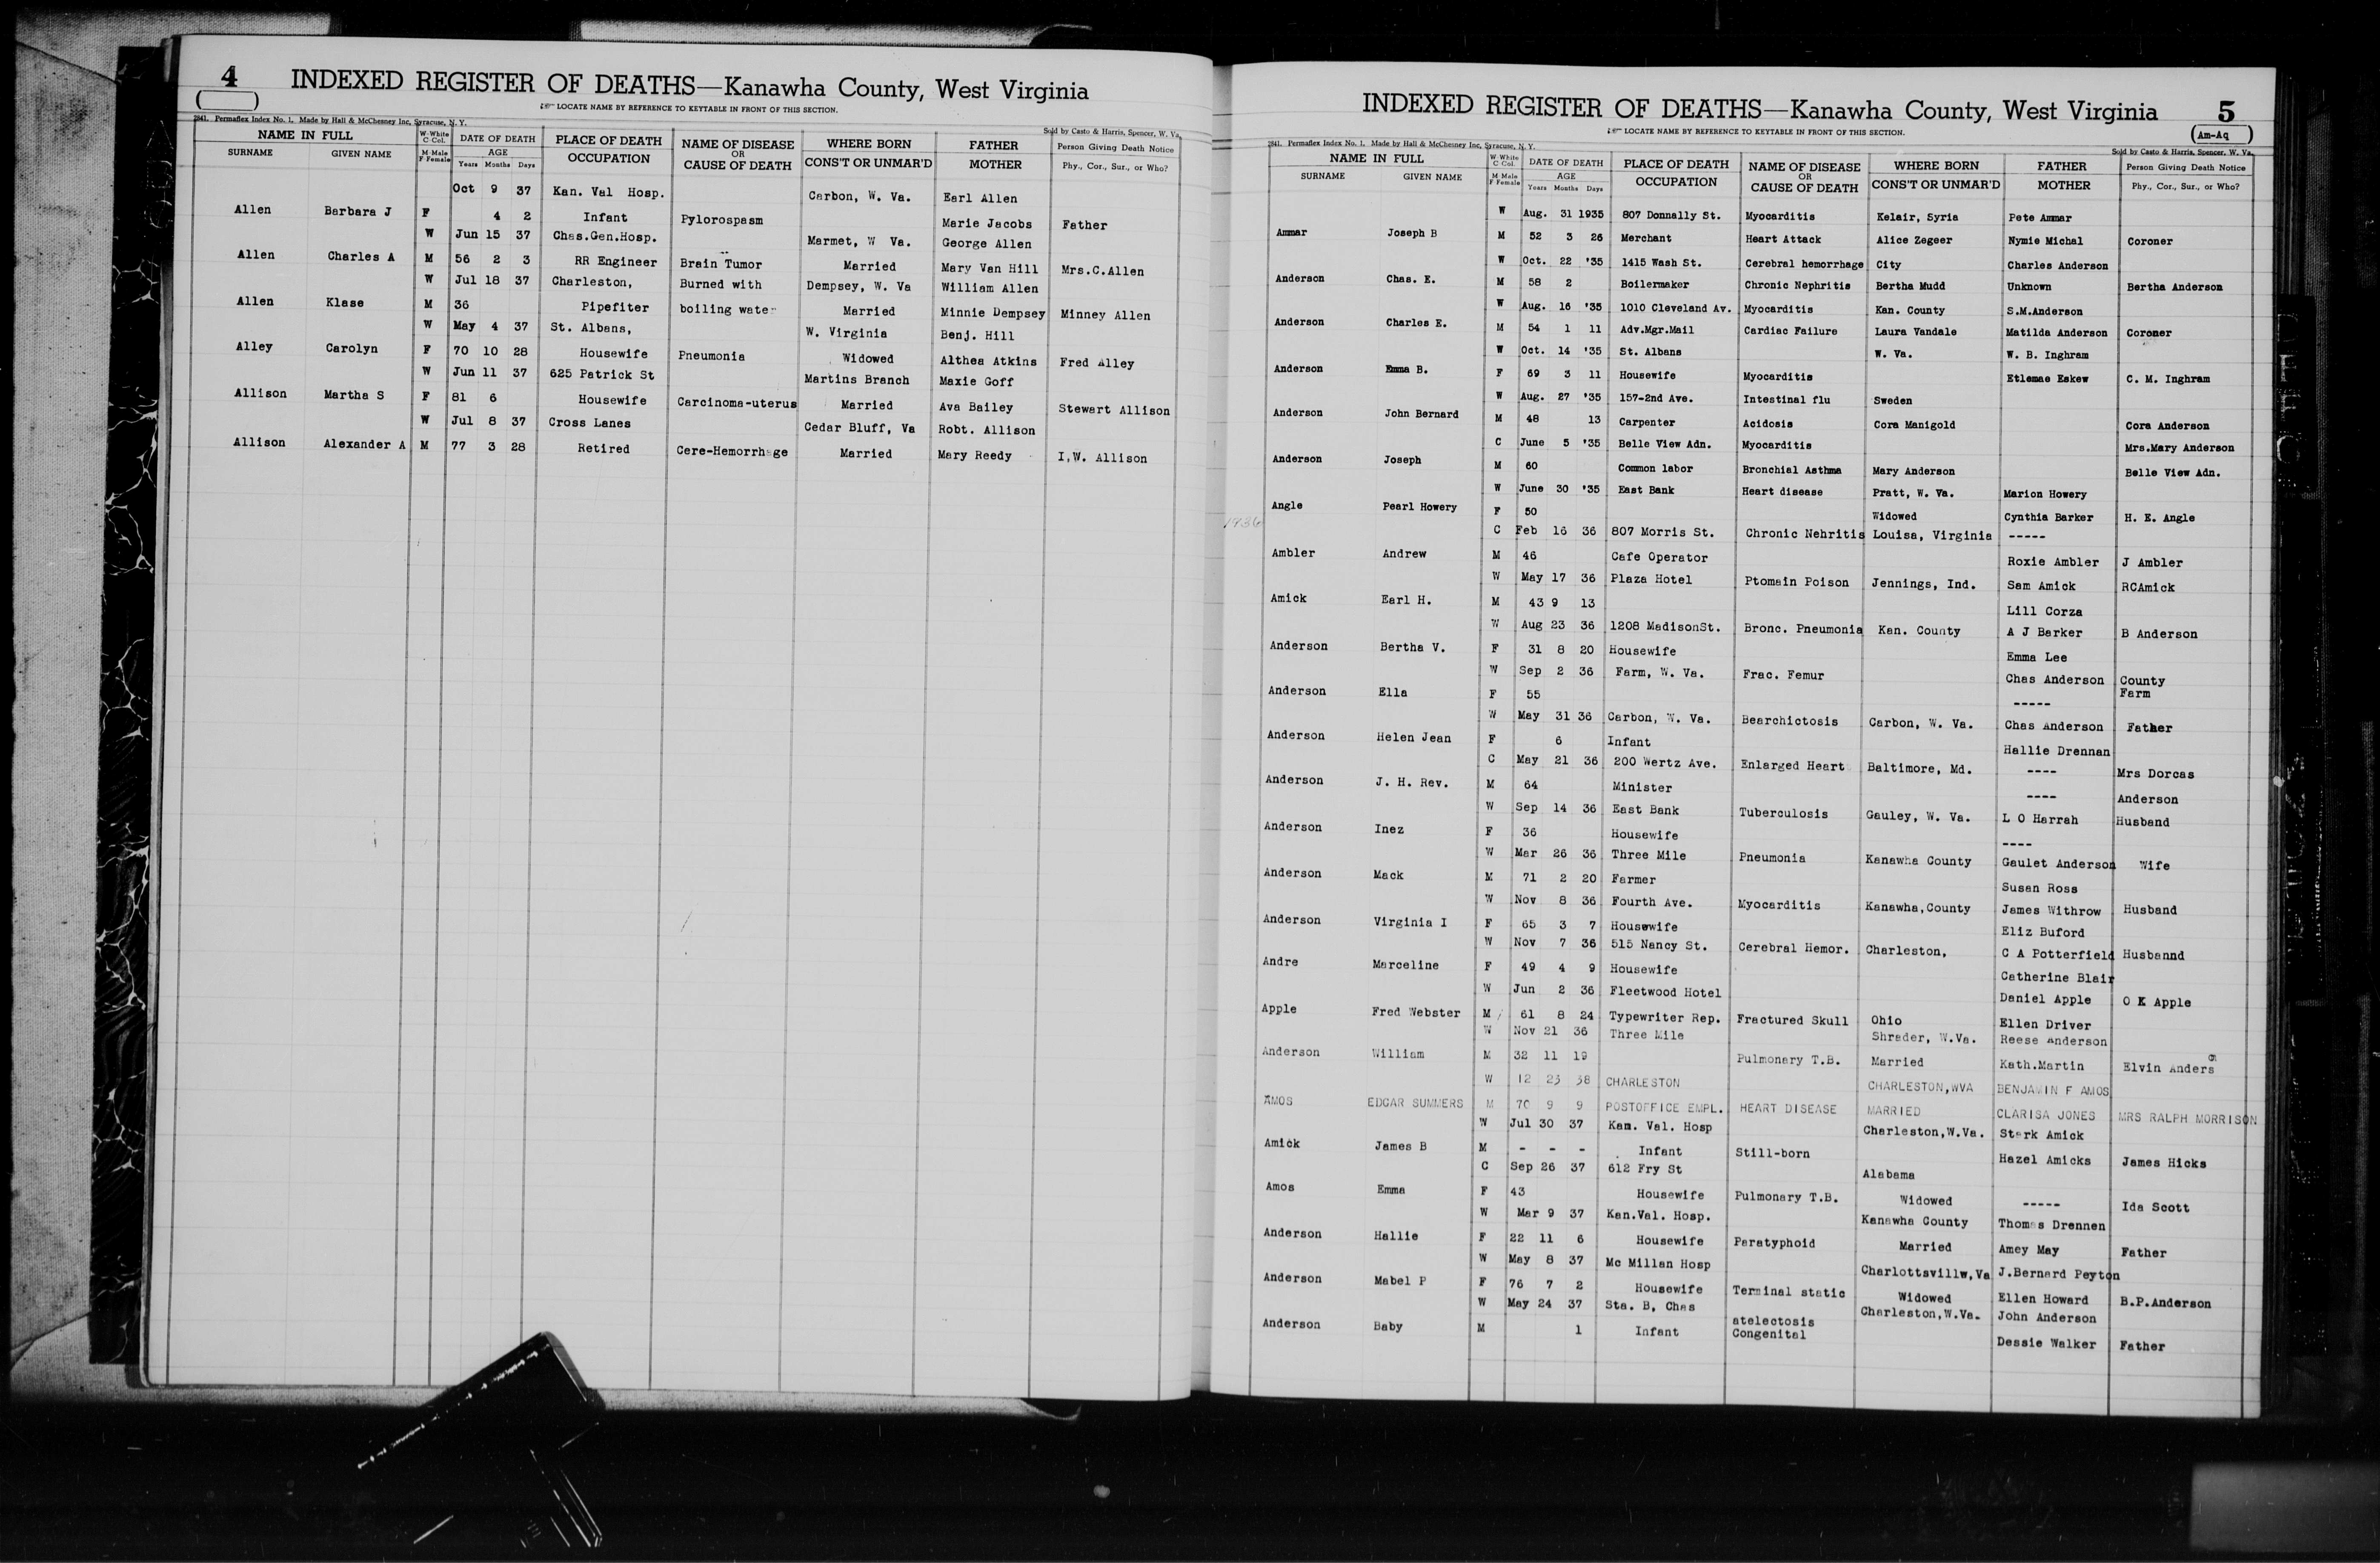 4
INDEXED REGISTER OF DEATHS—Kanawha County, West Virginia
LOCATE NAME BY REFERENCE TO KEYTABLE IN FRONT OF THIS SECTION.
2841. Permaflex Index No. 1. Made by Hall & McChesney Inc, Syracuse, N. Y. Sold by Casto & Harris, Spencer, W. Va.
NAME IN FULL W-White C-Col. DATE OF DEATH PLACE OF DEATH NAME OF DISEASE OR CAUSE OF DEATH WHERE BORN FATHER Person Giving Death Notice
SURNAME GIVEN NAME M-Male F Female AGE Years Months Days OCCUPATION CONS'T OR UNMAR'D MOTHER Phy., Cor., Sur., or Who?
Oct 9 37 Kan. Val Hosp. Carbon, W. Va. Earl Allen
Allen Barbara J F 4 2 Infant Pylorospasm Marie Jacobs Father
W Jun 15 37 Chas.Gen.Hosp. Marmet, W Va. George Allen
Allen Charles A M 56 2 3 RR Engineer Brain Tumor Married Mary Van Hill Mrs.C.Allen
W Jul 18 37 Charleston, Burned with Dempsey, W. Va William Allen
Allen Klase M 36 Pipefiter boiling water Married Minnie Dempsey Minney Allen
W May 4 37 St. Albans, W. Virginia Benj. Hill
Alley Carolyn F 70 10 28 Housewife Pneumonia Widowed Althea Atkins Fred Alley
W Jun 11 37 625 Patrick St Martins Branch Maxie Goff
Allison Martha S F 81 6 Housewife Carcinoma-uterus Married Ava Bailey Stewart Allison
W Jul 8 37 Cross Lanes Cedar Bluff, Va Robt. Allison
Allison Alexander A M 77 3 28 Retired Cere-Hemorrhage Married Mary Reedy I,W. Allison
INDEXED REGISTER OF DEATHS—Kanawha County, West Virginia
5
(Am-Aq)
LOCATE NAME BY REFERENCE TO KEYTABLE IN FRONT OF THIS SECTION.
2841. Permaflex Index No. 1. Made by Hall & McChesney Inc, Syracuse, N. Y. Sold by Casto & Harris, Spencer, W. Va.
NAME IN FULL W-White C Col. DATE OF DEATH PLACE OF DEATH NAME OF DISEASE OR CAUSE OF DEATH WHERE BORN FATHER Person Giving Death Notice
SURNAME GIVEN NAME M Male F Female AGE Years Months Days OCCUPATION CONS'T OR UNMAR'D MOTHER Phy., Cor., Sur., or Who?
W Aug. 31 1935 807 Donnally St. Myocarditis Kelair, Syria Pete Ammar
Ammar Joseph B M 52 3 26 Merchant Heart Attack Alice Zegeer Nymie Michal Coroner
W Oct. 22 '35 1415 Wash St. Cerebral hemorrhage City Charles Anderson
Anderson Chas. E. M 58 2 Boilermaker Chronic Nephritis Bertha Mudd Unknown Bertha Anderson
W Aug. 16 '35 1010 Cleveland Av. Myocarditis Kan. County S.M.Anderson
Anderson Charles E. M 54 1 11 Adv.Mgr.Mail Cardiac Failure Laura Vandale Matilda Anderson Coroner
W Oct. 14 '35 St. Albans W. Va. W. B. Inghram
Anderson Emma B. F 69 3 11 Housewife Myocarditis Etlemae Eskew C. M. Inghram
W Aug. 27 '35 157-2nd Ave. Intestinal flu Sweden
Anderson John Bernard M 48 13 Carpenter Acidosis Cora Manigold Cora Anderson
C June 5 '35 Belle View Adn. Myocarditis Mrs.Mary Anderson
Anderson Joseph M 60 Common labor Bronchial Asthma Mary Anderson Belle View Adn.
W June 30 '35 East Bank Heart disease Pratt, W. Va. Marion Howery
Angle Pearl Howery F 50 Widowed Cynthia Barker H. E. Angle
1936 C Feb 16 36 807 Morris St. Chronic Nehritis Louisa, Virginia -----
Ambler Andrew M 46 Cafe Operator Roxie Ambler J Ambler
W May 17 36 Plaza Hotel Ptomain Poison Jennings, Ind. Sam Amick RCAmick
Amick Earl H. M 43 9 13 Lill Corza
W Aug 23 36 1208 MadisonSt. Bronc. Pneumonia Kan. County A J Barker B Anderson
Anderson Bertha V. F 31 8 20 Housewife Emma Lee
W Sep 2 36 Farm, W. Va. Frac. Femur Chas Anderson County Farm
Anderson Ella F 55 -----
W May 31 36 Carbon, W. Va. Bearchictosis Carbon, W. Va. Chas Anderson Father
Anderson Helen Jean F 6 Infant Hallie Drennan
C May 21 36 200 Wertz Ave. Enlarged Heart Baltimore, Md. ---- Mrs Dorcas
Anderson J. H. Rev. M 64 Minister ---- Anderson
W Sep 14 36 East Bank Tuberculosis Gauley, W. Va. L O Harrah Husband
Anderson Inez F 36 Housewife ----
W Mar 26 36 Three Mile Pneumonia Kanawha County Gaulet Anderson Wife
Anderson Mack M 71 2 20 Farmer Susan Ross
W Nov 8 36 Fourth Ave. Myocarditis Kanawha,County James Withrow Husband
Anderson Virginia I F 65 3 7 Housewife Eliz Buford
W Nov 7 36 515 Nancy St. Cerebral Hemor. Charleston, C A Potterfield Husbannd
Andre Marceline F 49 4 9 Housewife Catherine Blair
W Jun 2 36 Fleetwood Hotel Daniel Apple O K Apple
Apple Fred Webster M 61 8 24 Typewriter Rep. Fractured Skull Ohio Ellen Driver
W Nov 21 36 Three Mile Shreder, W.Va. Reese Anderson
Anderson William M 32 11 19 Pulmonary T.B. Married Kath.Martin Elvin Anders
W 12 23 38 CHARLESTON CHARLESTON,WVA BENJAMIN F AMOS
AMOS EDGAR SUMMERS M 70 9 9 POSTOFFICE EMPL. HEART DISEASE MARRIED CLARISA JONES MRS RALPH MORRISON
W Jul 30 37 Kan. Val. Hosp Charleston,W.Va. Stark Amick
Amick James B M - - - Infant Still-born Hazel Amicks James Hicks
C Sep 26 37 612 Fry St Alabama
Amos Emma F 43 Housewife Pulmonary T.B. Widowed ----- Ida Scott
W Mar 9 37 Kan.Val. Hosp. Kanawha County Thomas Drennen
Anderson Hallie F 22 11 6 Housewife Paratyphoid Married Amey May Father
W May 8 37 Mc Millan Hosp Charlottsvillw,Va J.Bernard Peyton
Anderson Mabel P F 76 7 2 Housewife Terminal static Widowed Ellen Howard B.P.Anderson
W May 24 37 Sta. B, Chas atelectosis Charleston,W.Va. John Anderson
Anderson Baby M 1 Infant Congenital Dessie Walker Father